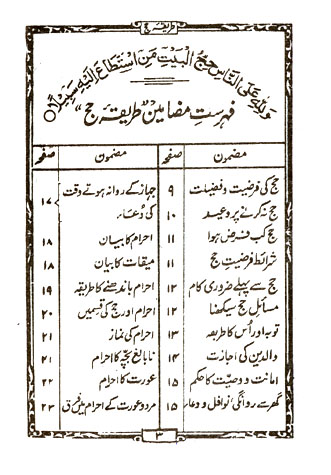 طریقۂ حج
وَلِلّٰهِ عَلَى النَّاسِ حِجُّ الْبَيْتِ مَنِ اسْتَطَاعَ اِلَيْهِ سَبِيْلًا
فہرستِ مضامین "طریقۂ حج"
مضمون صفحہ
حج کی فرضیت و فضیلت ۹
حج نہ کرنے پر وعید ۱۰
حج کب فرض ہوا ۱۱
شرائط فرضیتِ حج ۱۱
حج سے پہلے ضروری کام ۱۲
مسائلِ حج سیکھنا ۱۲
توبہ اور اُس کا طریقہ ۱۳
والدین کی اجازت ۱۴
امانت و وصیّت کا حکم ۱۵
گھر سے روانگی، نوافل و دعاء ۱۵
مضمون صفحہ
جہاز کے روانہ ہوتے وقت
کی دُعاء ۱۷
احرام کا بیان ۱۸
میقات کا بیان ۱۸
احرام باندھنے کا طریقہ ۱۹
احرام اور حج کی قسمیں ۲۰
احرام کی نماز ۲۱
نابالغ بچّہ کا احرام ۲۱
عورت کا احرام ۲۲
مرد و عورت کے احرام میں فرق ۲۳
۳